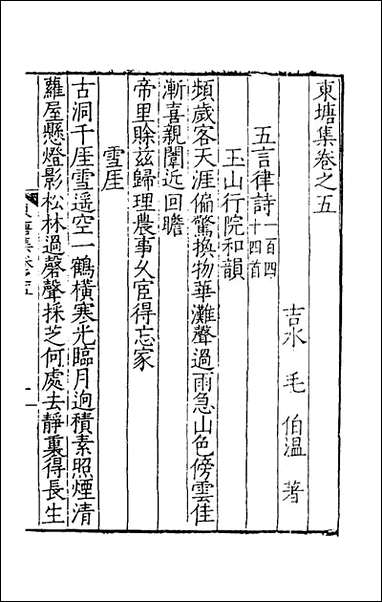 東塘集卷之五
吉水 毛 伯溫 著
五言律詩一百四十四首
玉山行院和韻
頻歲客天涯偏驚換物華灘聲過雨急山色傍雲佳
漸喜親闈近回瞻
帝里賒茲歸理農事久宦得忘家
雪厓
古洞千厓雪遥空一鶴橫寒光臨月逈積素照煙清
蘿屋懸燈影松林過磬聲採芝何處去靜裏得長生